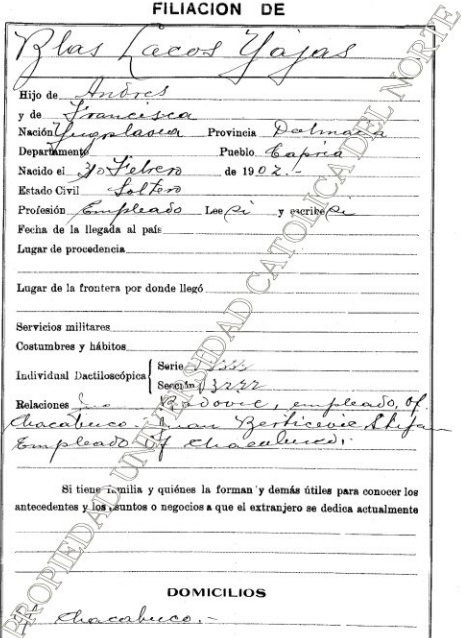 FILIACION DE
Blas Lacos Yajas
Hijo de Andres
y de Francisca
Nación Yugolavia Provincia Dalmacia
Departamento Pueblo Capria
Nacido el 3 Febrero de 1902.-
Estado Civil Soltero
Profesión Empleado Lee Si y escribe Si
Fecha de la llegada al país
Lugar de procedencia
Lugar de la frontera por donde llegó
Servicios militares
Costumbres y hábitos
Individual Dactiloscópica Serie 1333
Sección
Relaciones Radovic, empleado, Of.
Chacabuco. Juan Berticevic Stefan
Empleado Of Chacabuco.
Si tiene familia y quiénes la forman y demás útiles para conocer los
antecedentes y los asuntos o negocios a que el extranjero se dedica actualmente
DOMICILIOS
Of Chacabuco.-
PROPIEDAD UNIVERSIDAD CATOLICA DEL NORTE